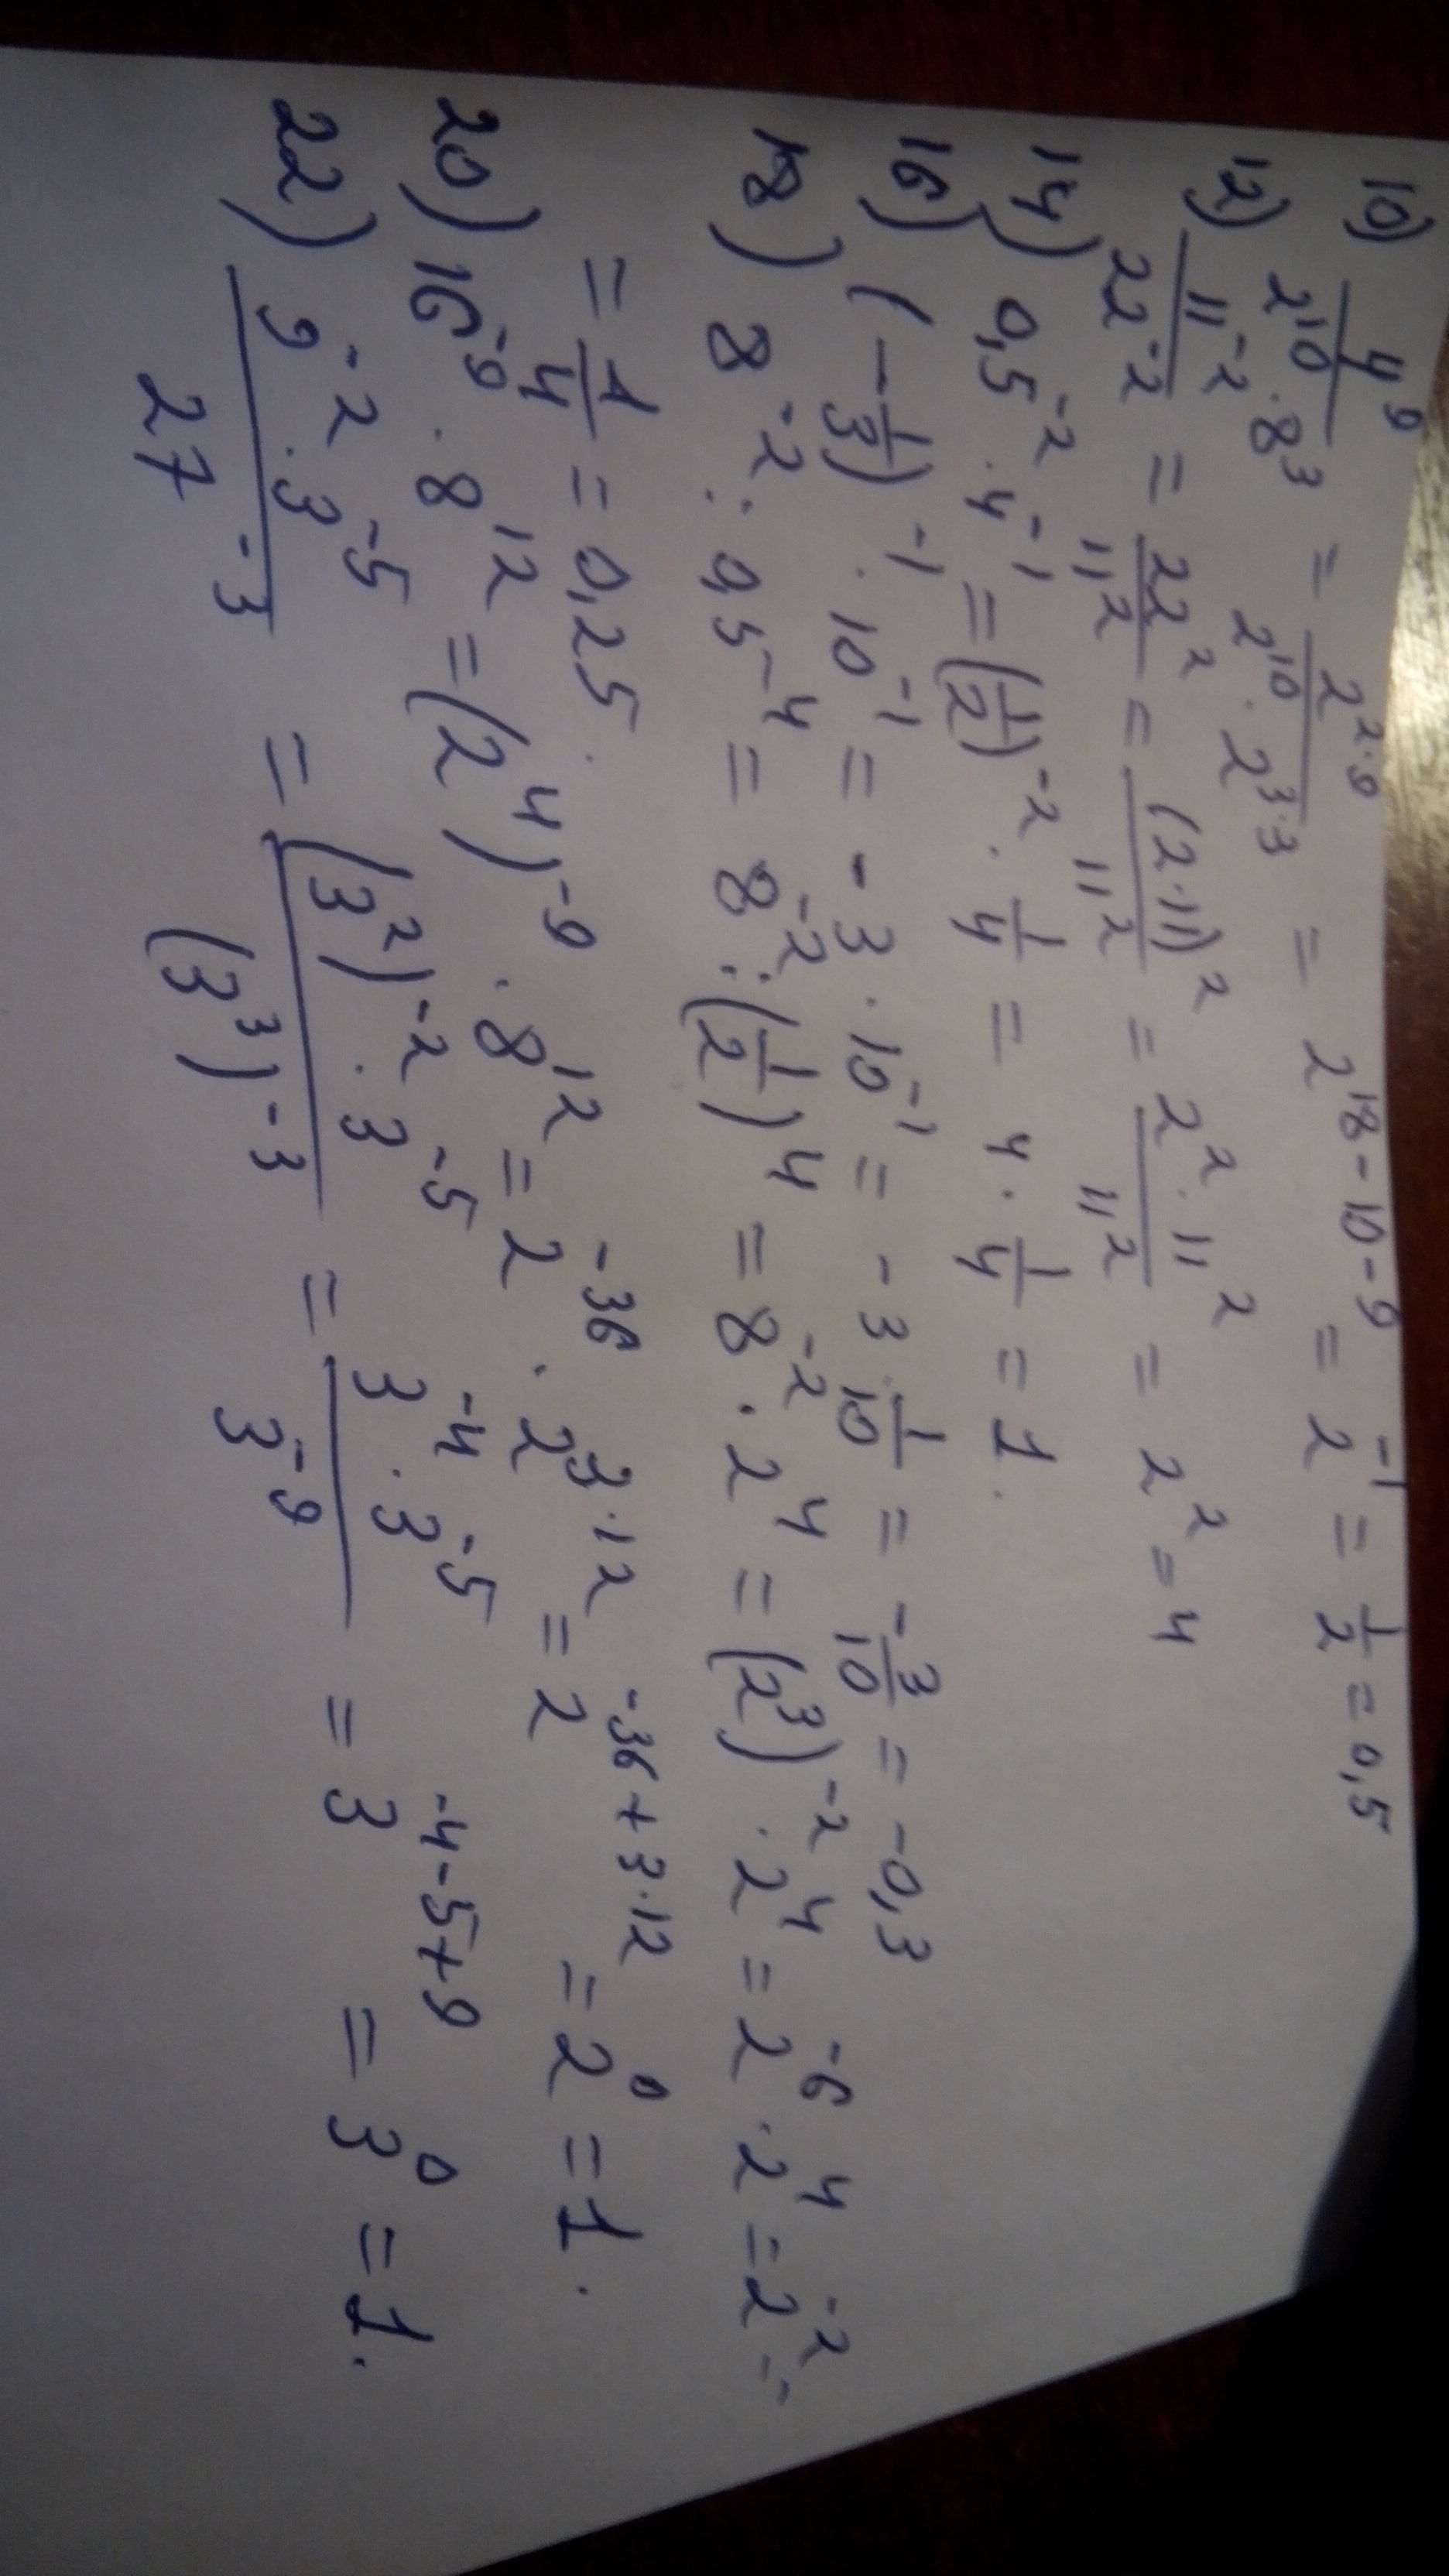 10) 4^9 / (2^10 · 8^3) = 2^(2·9) / (2^10 · 2^(3·3)) = 2^(18-10-9) = 2^(-1) = 1/2 = 0,5
12) 11^(-2) / 22^(-2) = 22^2 / 11^2 = (2·11)^2 / 11^2 = 2^2 · 11^2 / 11^2 = 2^2 = 4
14) 0,5^(-2) · 4^(-1) = (1/2)^(-2) · 1/4 = 4 · 1/4 = 1.
16) (-1/3)^(-1) · 10^(-1) = -3 · 10^(-1) = -3 · 1/10 = -3/10 = -0,3
18) 8^(-2) : 0,5^(-4) = 8^(-2) : (1/2)^4 = 8^(-2) · 2^4 = (2^3)^(-2) · 2^4 = 2^(-6) · 2^4 = 2^(-2) =
= 1/4 = 0,25.
20) 16^(-9) · 8^12 = (2^4)^(-9) · 8^12 = 2^(-36) · 2^(3·12) = 2^(-36+3·12) = 2^0 = 1.
22) 9^(-2) · 3^(-5) / 27^(-3) = (3^2)^(-2) · 3^(-5) / (3^3)^(-3) = 3^(-4) · 3^(-5) / 3^(-9) = 3^(-4-5+9) = 3^0 = 1.